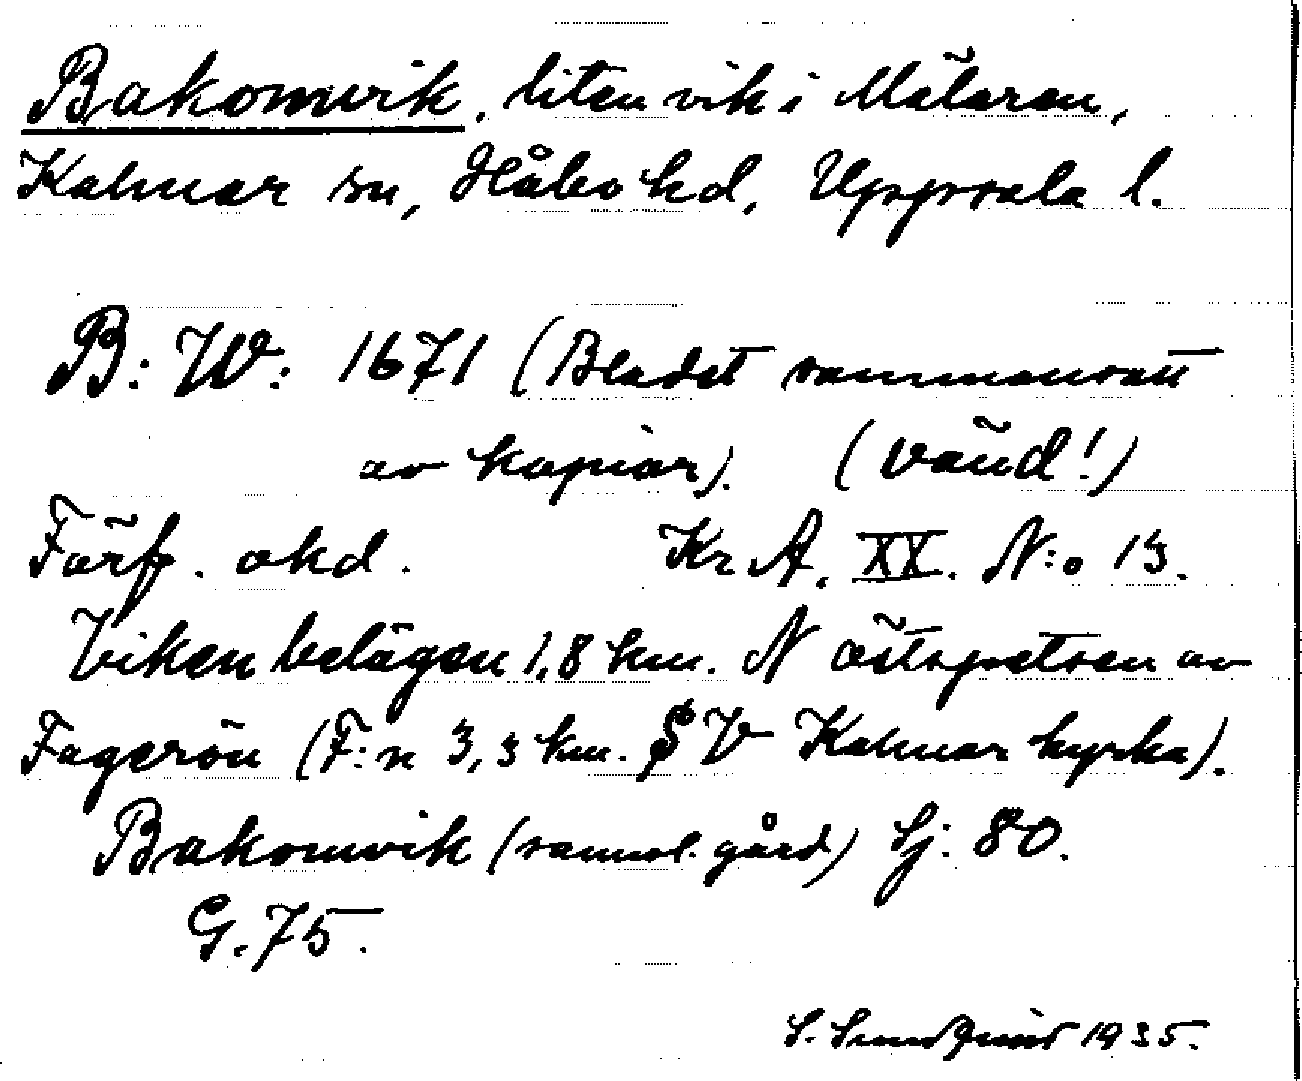 Bakomvik, liten vik i Mälaren,
Kalmar sn, Håbo hd, Uppsala l.
B: W: 1671 (Bladet sammansatt
av kopior). (vänd!)
Förf. okd. Kr. A. XX. N:o 13.
Viken belägen 1,8 km. N östspetsen av
Fagerön (F:n 3,3 km. V Kalmar kyrka).
Bakomvik (saml. gård) Sj: 80.
G. 75.
S. Sundquist 1935.